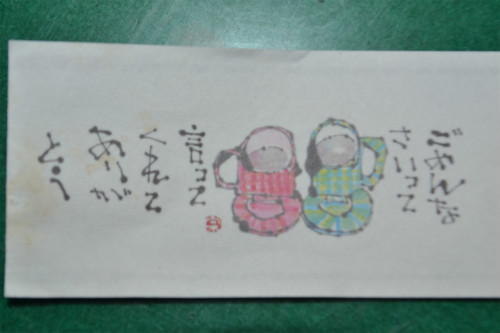 ごめんな
さいって
言って
くれて
ありが
とう